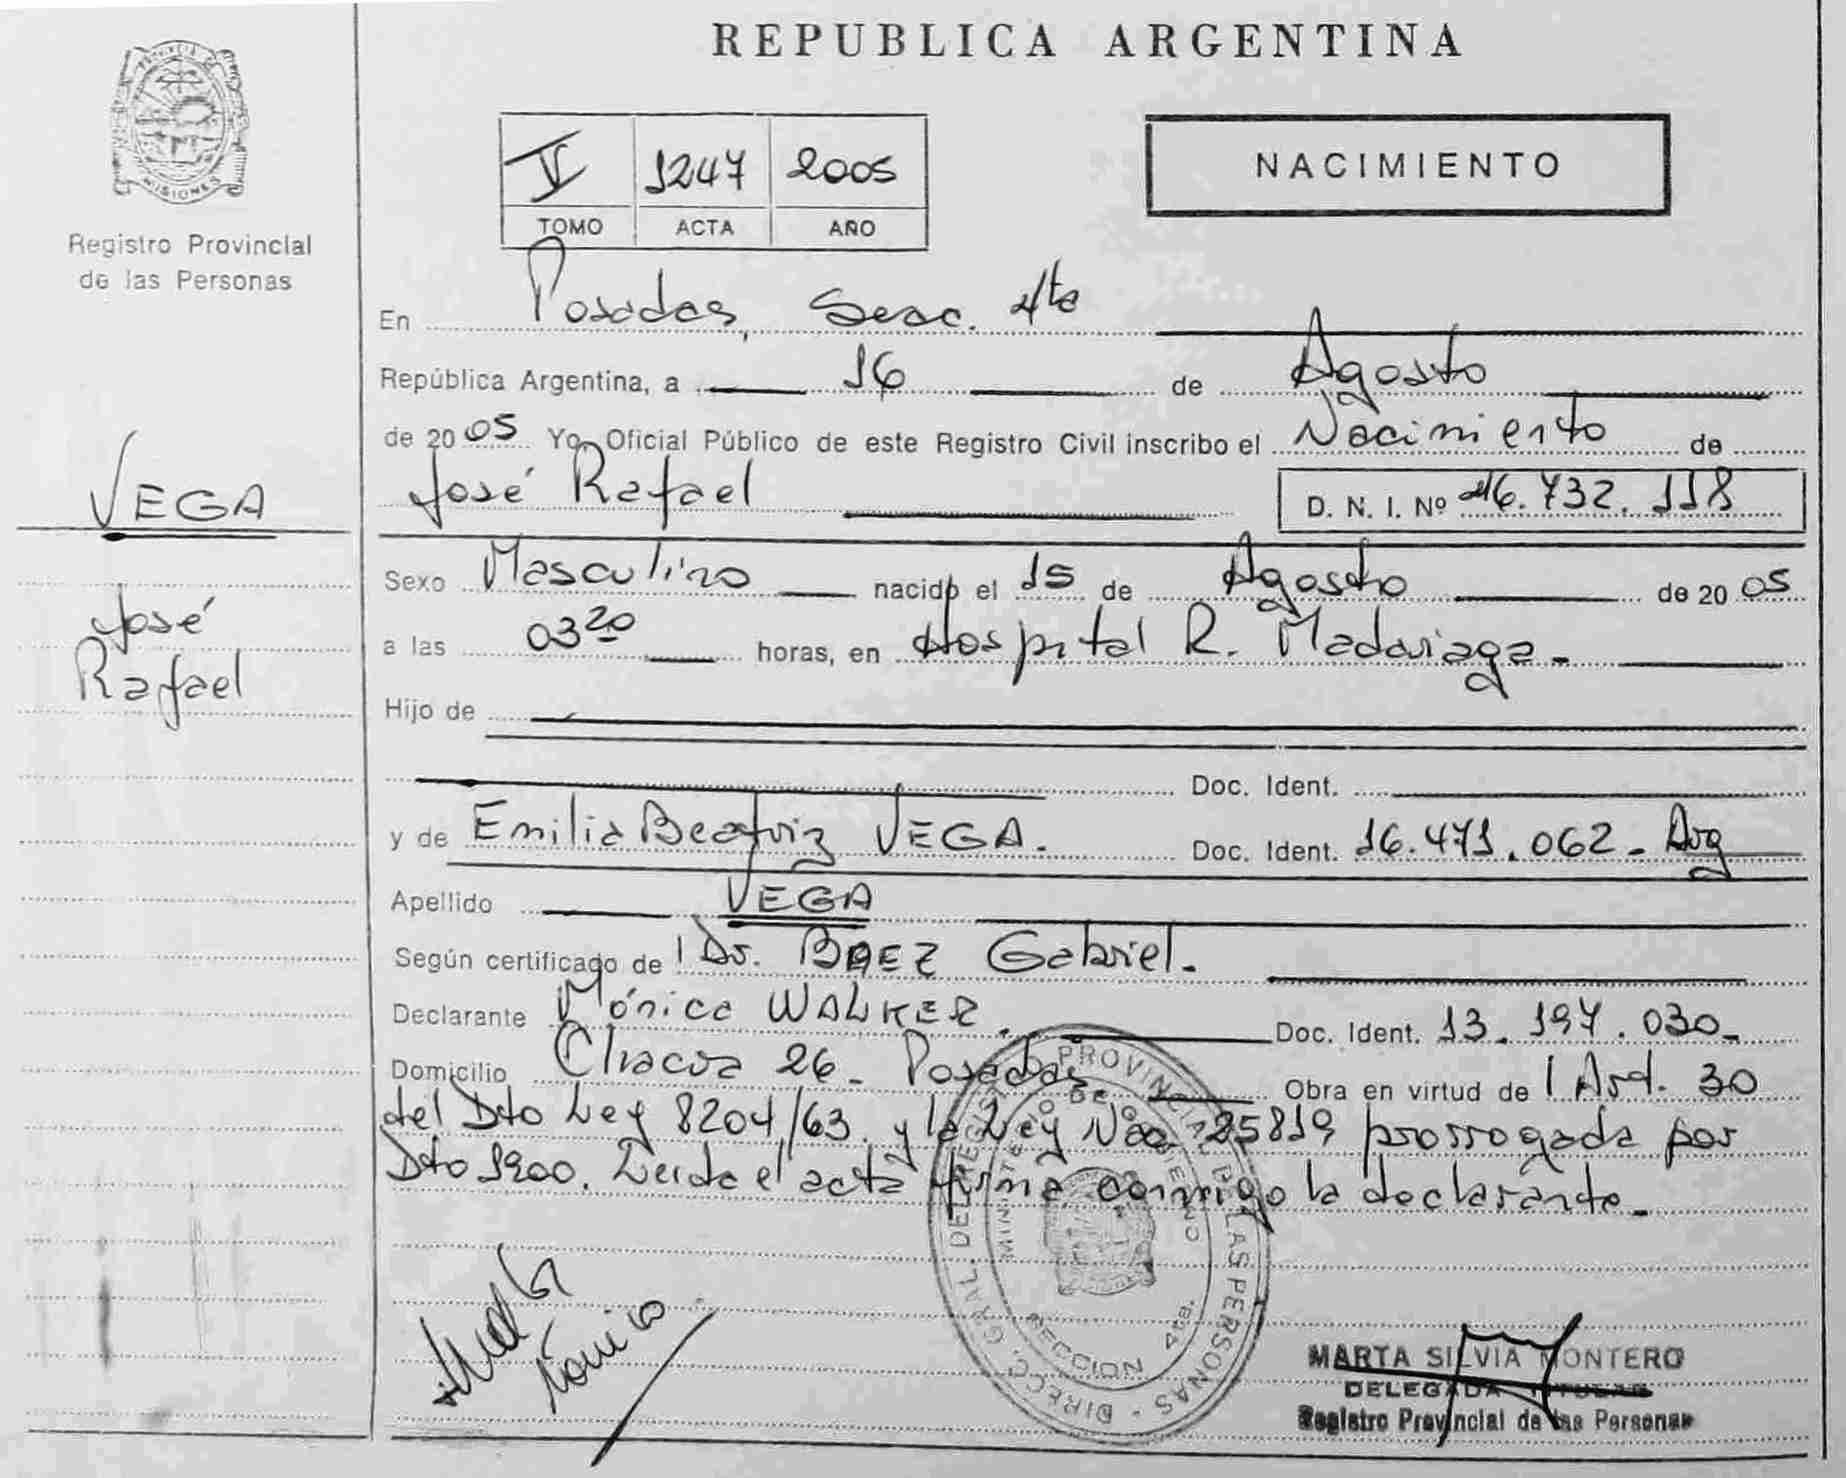 REPUBLICA ARGENTINA
PROVINCIA DE
MISIONES
Registro Provincial
de las Personas
V 1247 2005
TOMO ACTA AÑO
NACIMIENTO
VEGA
José
Rafael
En Posadas, Secc. 4ta
República Argentina, a 16 de Agosto
de 2005 Yo, Oficial Público de este Registro Civil inscribo el Nacimiento de
José Rafael D. N. I. Nº 46.732.118
Sexo Masculino nacido el 15 de Agosto de 2005
a las 03 20 horas, en Hospital R. Madariaga.-
Hijo de
Doc. Ident.
y de Emilia Beatriz VEGA. Doc. Ident. 16.471.062- Arg
Apellido VEGA
Según certificado de Dr. BAEZ Gabriel.-
Declarante Mónica WALKER. Doc. Ident. 13.197.030-
Domicilio Chacra 26- Posadas. Obra en virtud de Art. 30
del Dto Ley 8204/63 y la Ley Nac. 25819 prorrogada por
Dto 1900. Leida el acta firma conmigo la declarante.-
DIRECC. GRAL. DEL REGISTRO PROVINCIAL DE LAS PERSONAS
MINISTERIO DE GOBIERNO
SECCION 4ta.
Walker
Mónica
MARTA SILVIA MONTERO
DELEGADA TITULAR
Registro Provincial de las Personas